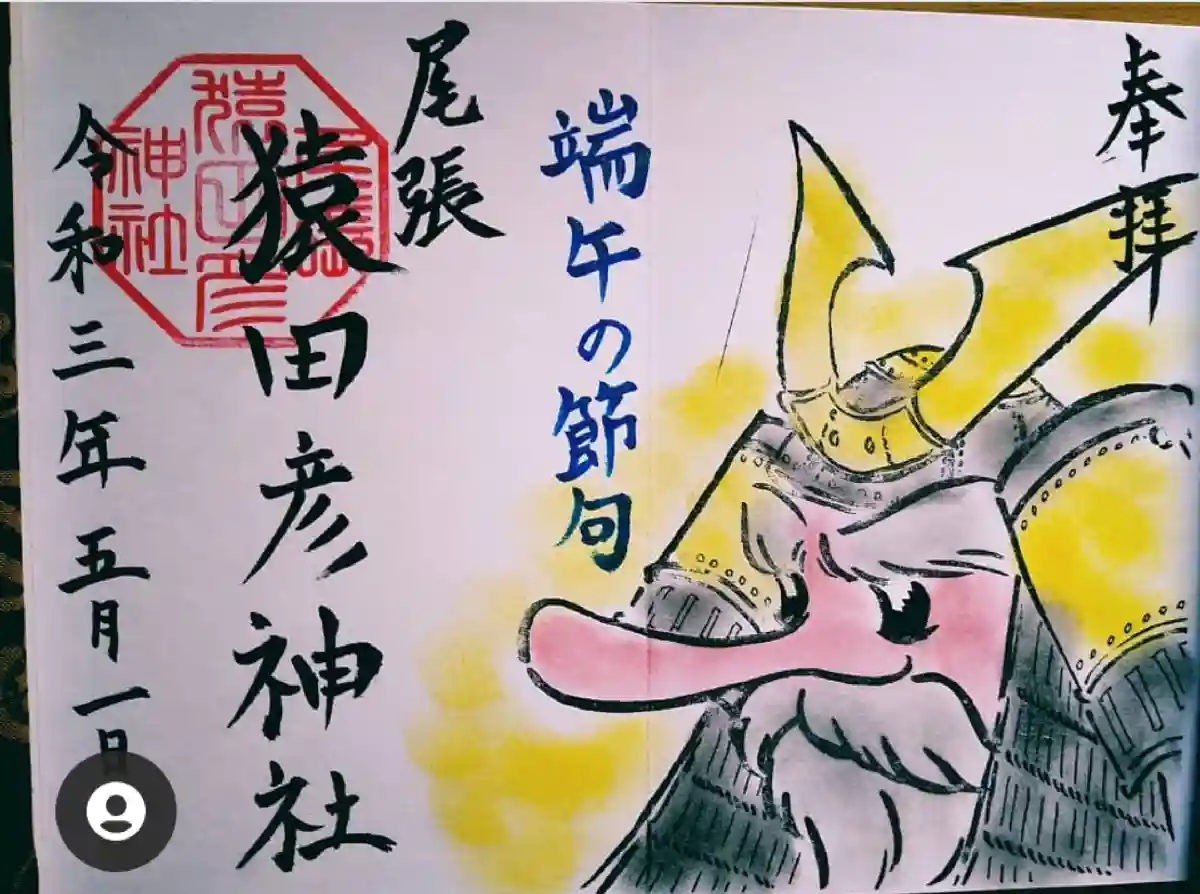 奉拝
端午の節句
尾張
猿田彦神社
猿田彦
神社
令和三年五月一日